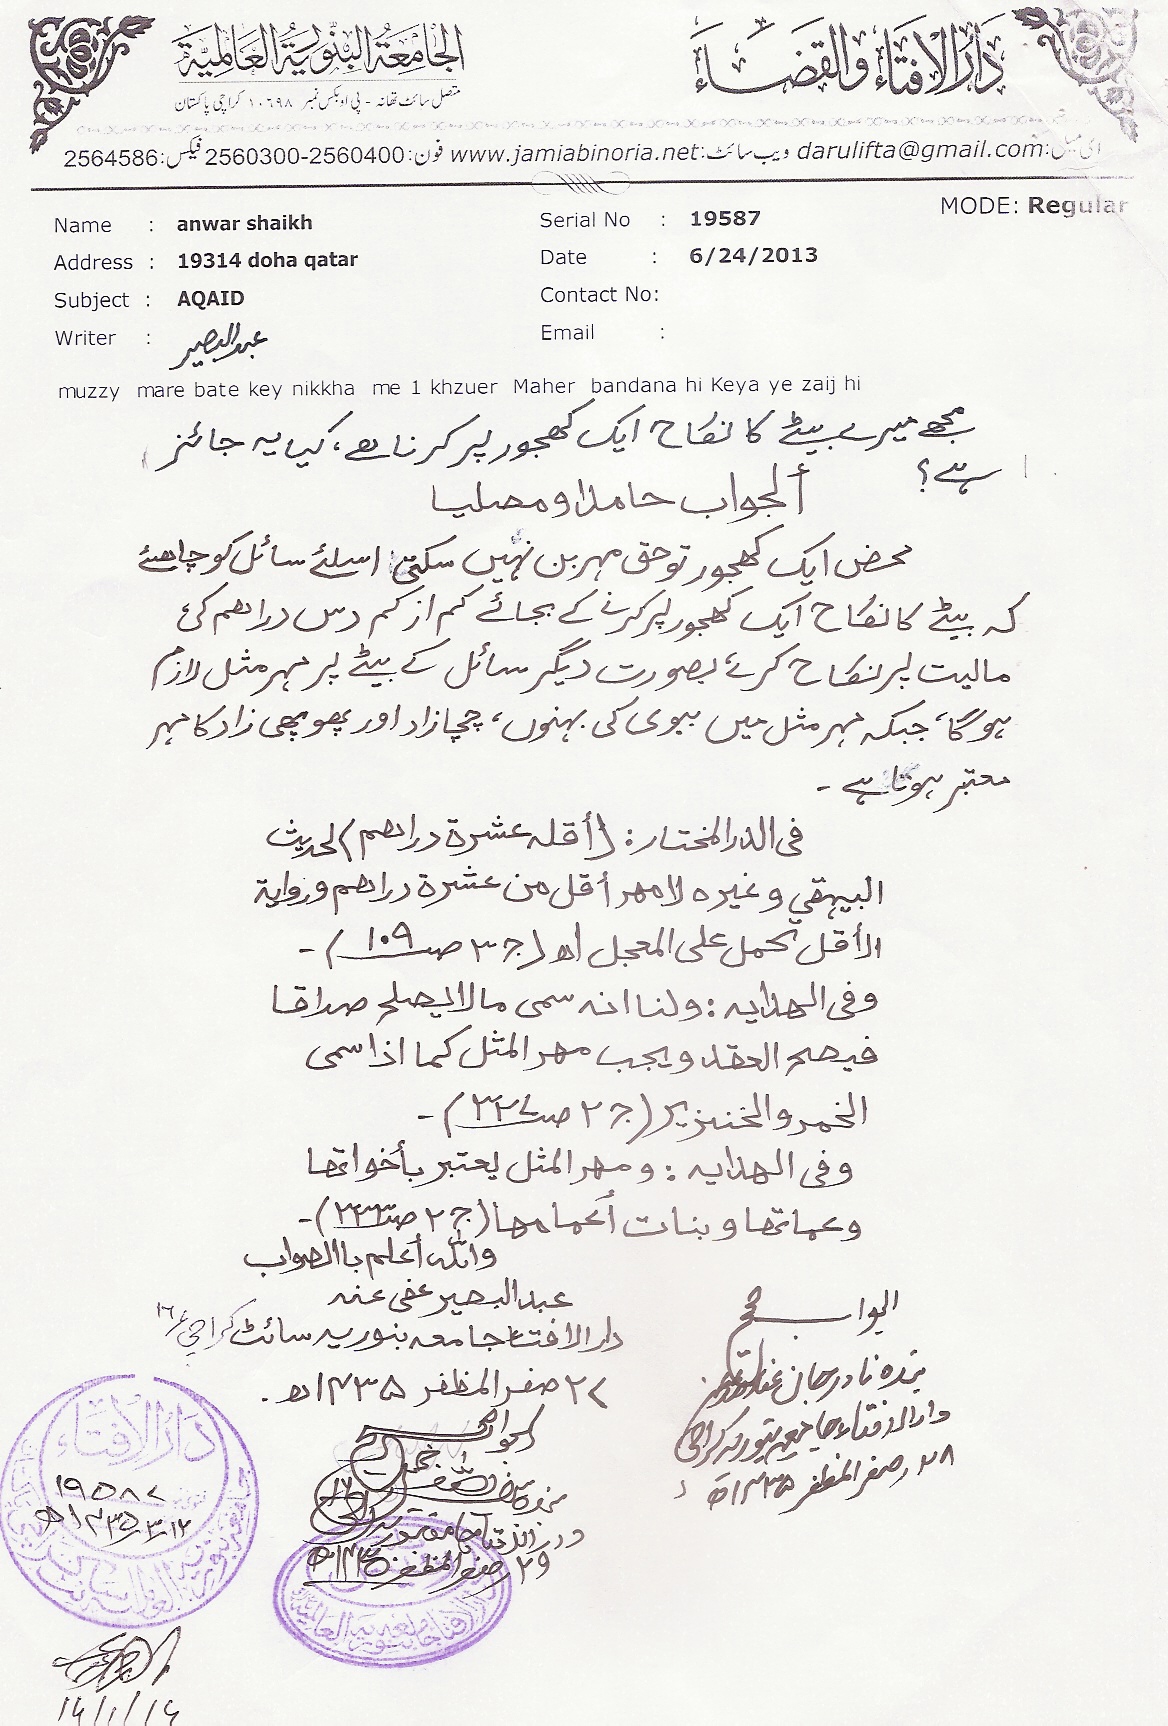 دَارُ الِافتَاء وَالقَضَاء
الجَامِعَةُ البِنُّورِيَّة العَالَمِيَّة
متصل سائٹ تھانہ - پی او بکس نمبر ۱۰۶۹۸ کراچی پاکستان
ای میل: darulifta@gmail.com ویب سائٹ: www.jamiabinoria.net فون: 2560300-2560400 فیکس: 2564586
MODE: Regular
Name : anwar shaikh Serial No : 19587
Address : 19314 doha qatar Date : 6/24/2013
Subject : AQAID Contact No:
Writer : عبدالبصیر Email :
muzzy mare bate key nikkha me 1 khzuer Maher bandana hi Keya ye zaij hi
مجھے میرے بیٹے کا نکاح ایک کھجور پر کرنا ہے، کیا یہ جائز
ہے؟
ألجواب حامدا و مصلیا
محض ایک کھجور تو حق مہر بن نہیں سکتی اسلئے سائل کو چاہئے
کہ بیٹے کا نکاح ایک کھجور پر کرنے کے بجائے کم از کم دس دراھم کی
مالیت پر نکاح کرے بصورت دیگر سائل کے بیٹے پر مہر مثل لازم
ہوگا، جبکہ مہر مثل میں بیوی کی بہنوں، چچازاد اور پھوپھی زاد کا مہر
معتبر ہوتا ہے -
فی الدر المختار: (أقلہ عشرة دراھم) لحدیث
البیہقي و غیرہ لا مھر أقل من عشرة دراھم و روایة
الأقل تحمل علی المعجل اھ (ج ۳ صـ ۱۰۹) -
و فی الھدایہ: و لنا انہ سمی مالا یصلح صداقا
فیصح العقد و یجب مھر المثل کما اذا سمی
الخمر و الخنزیر (ج ۲ صـ) -
و فی الھدایہ: و مھر المثل یعتبر بأخواتھا
و عماتھا و بنات أعمامھا (ج ۲ صـ ۳۳۳) -
واللہ أعلم باالصواب
عبد البصیر عفی عنہ
دار الافتاء جامعہ بنوریہ سائٹ کراچی ۱۶
۲۷ صفر المظفر ۱۴۳۵ھ .
الجواب صحیح
بندہ نادر جان
دار الافتاء جامعہ بنوریہ کراچی
۲۸ صفر المظفر ۱۴۳۵ھ
الجواب صحیح
۲۹ صفر المظفر ۱۴۳۵ھ
دَارُ الِافتَاء
۱۹۵۸۷
۱۴۳۵-۳-۱۲ھ
۱۴/۱/۱۴